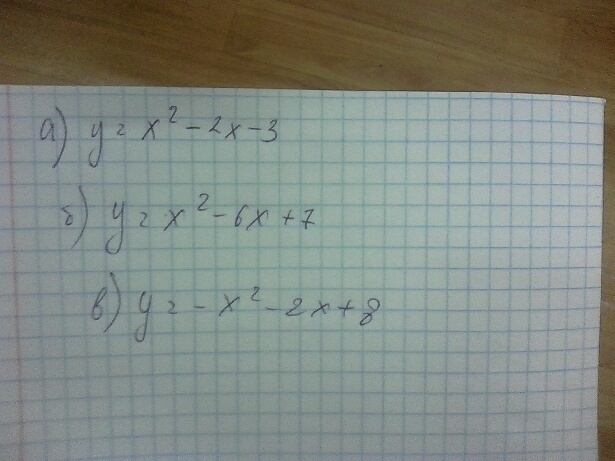 а) y = x² - 2x - 3
б) y = x² - 6x + 7
в) y = - x² - 2x + 8